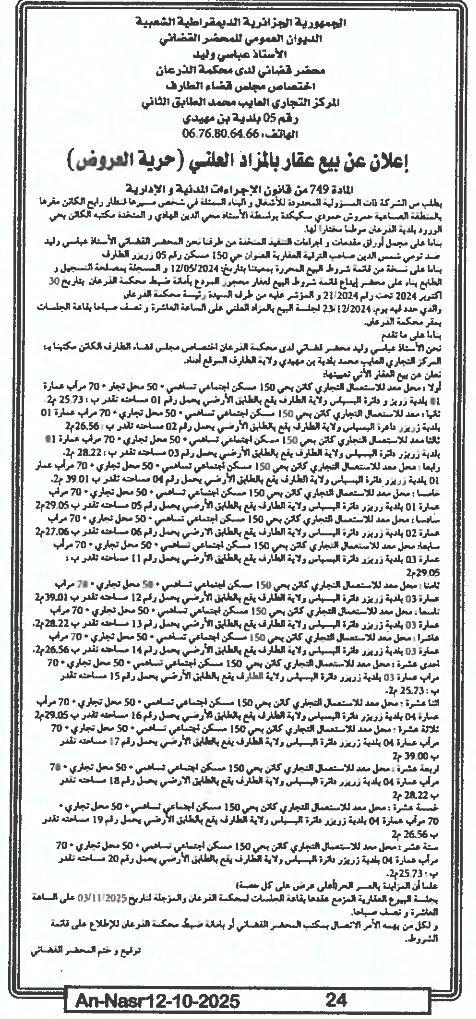 الجمهورية الجزائرية الديمقراطية الشعبية
الديوان العمومي للمحضر القضائي
الأستاذ عباسي وليد
محضر قضائي لدى محكمة الذرعان
اختصاص مجلس قضاء الطارف
المركز التجاري العايب محمد الطابق الثاني
رقم 05 بلدية بن مهيدي
الهاتف: 06.76.80.64.66
إعلان عن بيع عقار بالمزاد العلني (حرية العروض)
المادة 749 من قانون الإجراءات المدنية و الإدارية
يطلب من الشركة ذات المسؤولية المحدودة للأشغال و البناء الممثلة في شخص مسيرها لنطار رابح الكائن مقرها
بالمنطقة الصناعية حمروش حمودي سكيكدة بواسطة الأستاذ محي الدين الهادي و المتخذة مكتبه الكائن بحي
الورود بلدية الذرعان موطنا مختارا لها.
بناءا على مجمل أوراق مقدمات و إجراءات التنفيذ المتخذة من طرفنا نحن المحضر القضائي الأستاذ عباسي وليد
ضد تومي شمس الدين صاحب الترقية العقارية العنوان مسكن رقم 05 زريزر الطارف
بناءا على نسخة من قائمة شروط البيع المحررة بمعيتنا بتاريخ: 12/05/2024 و المسجلة بمصلحة التسجيل و
الطابع بناء على محضر إيداع قائمة شروط البيع لعقار محجوز المودع بأمانة ضبط محكمة الذرعان بتاريخ 30
أكتوبر 2024 تحت رقم 21/2024 و المؤشر عليه من طرف السيدة رئيسة محكمة الذرعان
والذي حدد فيه يوم: 23/12/2024 لجلسة البيع بالمزاد العلني على الساعة العاشرة و نصف صباحا بقاعة الجلسات
بمقر محكمة الذرعان.
بناءا على ما تقدم
نحن الأستاذ عباسي وليد محضر قضائي لدى محكمة الذرعان اختصاص مجلس قضاء الطارف الكائن مكتبنا بـ:
المركز التجاري العايب محمد بلدية بن مهيدي ولاية الطارف الموقع أدناه.
نعلن عن بيع العقار الآتي تعيينها:
أولا : محل معد للاستعمال التجاري كائن بحي 150 مسكن اجتماعي تساهمي + 50 محل تجاري + 70 مرآب عمارة
01 بلدية زريزر و دائرة البسباس ولاية الطارف يقع بالطابق الأرضي يحمل رقم 01 مساحته تقدر ب : 25.73 م2
ثانيا : معد للاستعمال التجاري كائن بحي 150 مسكن اجتماعي تساهمي + 50 محل تجاري + 70 مرآب عمارة 01
بلدية زريزر دائرة البسباس ولاية الطارف يقع بالطابق الأرضي يحمل رقم 02 مساحته تقدر ب : 26.56م2
ثالثا معد للاستعمال التجاري كائن بحي 150 مسكن اجتماعي تساهمي + 50 محل تجاري + 70 مرآب عمارة 01
بلدية زريزر دائرة البسباس ولاية الطارف يقع بالطابق الأرضي يحمل رقم 03 مساحته تقدر ب : 28.22 م2
رابعا : محل معد للاستعمال التجاري كائن بحي 150 مسكن اجتماعي تساهمي + 50 محل تجاري + 70 مرآب عمار
01 بلدية زريزر دائرة البسباس ولاية الطارف يقع بالطابق الأرضي يحمل رقم 04 مساحته تقدر ب 39.01 م2
خامسا : محل معد للاستعمال التجاري كائن بحي 150 مسكن اجتماعي تساهمي + 50 محل تجاري + 70 مرآب
عمارة 01 بلدية زريزر دائرة البسباس ولاية الطارف يقع بالطابق الأرضي يحمل رقم 05 مساحته تقدر ب 29.05م2
سادسا : محل معد للاستعمال التجاري كائن بحي 150 مسكن اجتماعي تساهمي + 50 محل تجاري + 70 مرآب
عمارة 02 بلدية زريزر دائرة البسباس ولاية الطارف يقع بالطابق الأرضي يحمل رقم 06 مساحته تقدر ب 27.06م2
سابعا: محل معد للاستعمال التجاري كائن بحي 150 مسكن اجتماعي تساهمي + 50 محل تجاري + 70 مرآب
عمارة 03 بلدية زريزر دائرة البسباس ولاية الطارف يقع بالطابق الأرضي يحمل رقم 11 مساحته تقدر ب :
29.05م2
ثامنا : محل معد للاستعمال التجاري كائن بحي 150 مسكن اجتماعي تساهمي + 50 محل تجاري + 70 مرآب
عمارة 03 بلدية زريزر دائرة البسباس ولاية الطارف يقع بالطابق الأرضي يحمل رقم 12 مساحته تقدر ب 39.01م2
تاسعا : محل معد للاستعمال التجاري كائن بحي 150 مسكن اجتماعي تساهمي + 50 محل تجاري + 70 مرآب
عمارة 03 بلدية زريزر دائرة البسباس ولاية الطارف يقع بالطابق الأرضي يحمل رقم 13 مساحته تقدر ب 28.22م2
عاشرا : محل معد للاستعمال التجاري كائن بحي 150 مسكن اجتماعي تساهمي + 50 محل تجاري + 70 مرآب
عمارة 03 بلدية زريزر دائرة البسباس ولاية الطارف يقع بالطابق الأرضي يحمل رقم 14 مساحته تقدر ب 26.56م2
احدى عشرة : محل معد للاستعمال التجاري كائن بحي 150 مسكن اجتماعي تساهمي + 50 محل تجاري + 70
مرآب عمارة 03 بلدية زريزر دائرة البسباس ولاية الطارف يقع بالطابق الأرضي يحمل رقم 15 مساحته تقدر
ب : 25.73 م2
اثنا عشرة : محل معد للاستعمال التجاري كائن بحي 150 مسكن اجتماعي تساهمي + 50 محل تجاري + 70 مرآب
عمارة 04 بلدية زريزر دائرة البسباس ولاية الطارف يقع بالطابق الأرضي يحمل رقم 16 مساحته تقدر ب 29.05م2
ثلاثة عشرة : محل معد للاستعمال التجاري كائن بحي 150 مسكن اجتماعي تساهمي + 50 محل تجاري + 70
مرآب عمارة 04 بلدية زريزر دائرة البسباس ولاية الطارف يقع بالطابق الأرضي يحمل رقم 17 مساحته تقدر
ب 39.00 م2
اربعة عشرة : محل معد للاستعمال التجاري كائن بحي 150 مسكن اجتماعي تساهمي + 50 محل تجاري + 70
مرآب عمارة 04 بلدية زريزر دائرة البسباس ولاية الطارف يقع بالطابق الأرضي يحمل رقم 18 مساحته تقدر
ب 28.22 م2
خمسة عشرة : محل معد للاستعمال التجاري كائن بحي 150 مسكن اجتماعي تساهمي + 50 محل تجاري +
70 مرآب عمارة 04 بلدية زريزر دائرة البسباس ولاية الطارف يقع بالطابق الأرضي يحمل رقم 19 مساحته تقدر
ب 26.56 م2
ستة عشر : محل معد للاستعمال التجاري كائن بحي 150 مسكن اجتماعي تساهمي + 50 محل تجاري + 70
مرآب عمارة 04 بلدية زريزر دائرة البسباس ولاية الطارف يقع بالطابق الأرضي يحمل رقم 20 مساحته تقدر
ب : 25.73م2
علما أن المزايدة بالسعر الحر(أعلى عرض على كل حصة)
بجلسة البيوع العقارية المزمع عقدها بقاعة الجلسات لمحكمة الذرعان والمؤجلة لتاريخ 03/11/2025 على الساعة
العاشرة و نصف صباحا.
و لكل من يهمه الأمر الاتصال بمكتب المحضر القضائي أو بأمانة ضبط محكمة الذرعان للإطلاع على قائمة
الشروط.
توقيع و ختم المحضر القضائي
An-Nasr12-10-2025 24